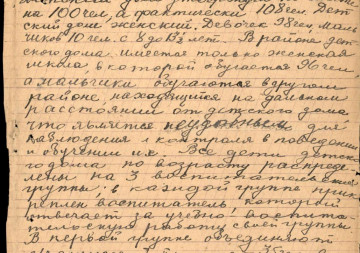 на 100 чел, а фактически 108 чел. Дет
ский дом женский. Девочек 98 чел маль
чиков 10 чел. с 8 до 13 лет. В районе дет
ского дома имеется только женская
школа, в которой обучается 96 чел
а мальчики обучаются в другом
районе, находящимся на дальном
расстоянии от детского дома
что является неудобным для
наблюдения и контроля в поведении
и обучении их. Все дети детск
го дома по возрасту распреде
лены на 3 воспитательские
группы; в каждой группе прик
реплен воспитатель, который
отвечает за учебно воспита
тельскую работу своей группы
В первой группе объединяют